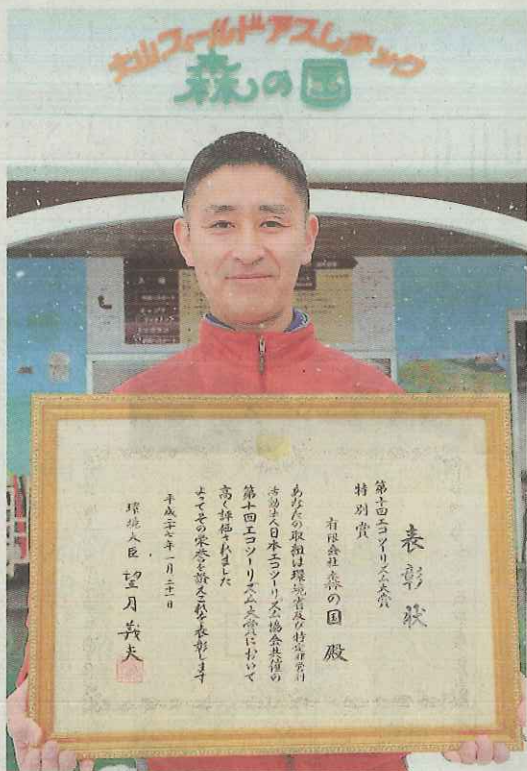 大山フィールドアスレチック
森の国
表彰状
第十回エコツーリズム大賞
特別賞
有限会社 森の国 殿
あなたの取組は環境省及び特定非営利
活動法人日本エコツーリズム協会共催の
第十回エコツーリズム大賞において
高く評価されました
よってその栄誉を讃えこれを表彰します
平成二十七年一月二十一日
環境大臣 望月義夫